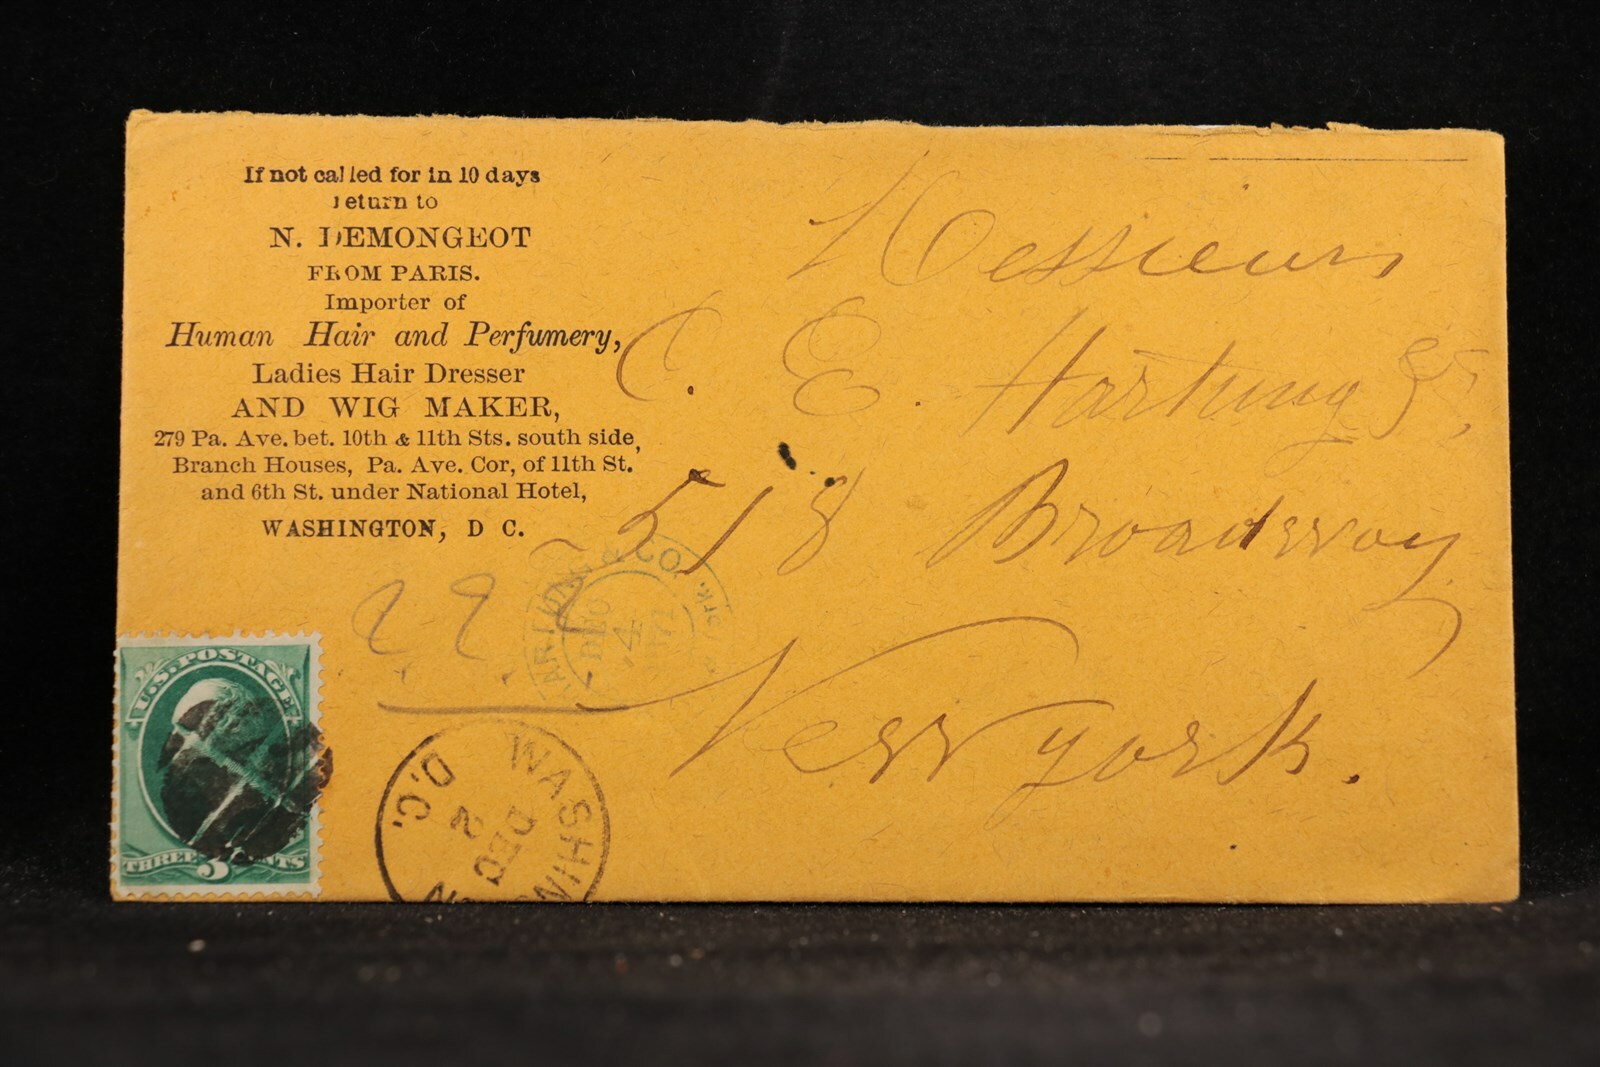 If not called for in 10 days
return to
N. DEMONGEOT
FROM PARIS.
Importer of
Human Hair and Perfumery,
Ladies Hair Dresser
AND WIG MAKER,
279 Pa. Ave. bet. 10th & 11th Sts. south side,
Branch Houses, Pa. Ave. Cor, of 11th St.
and 6th St. under National Hotel,
WASHINGTON, D C.
Messieurs
C. E. Hartung
518 Broadway
New York.
DEC
4
U.S. POSTAGE
THREE 3 CENTS
WASHIN
D.C.
DEC
2